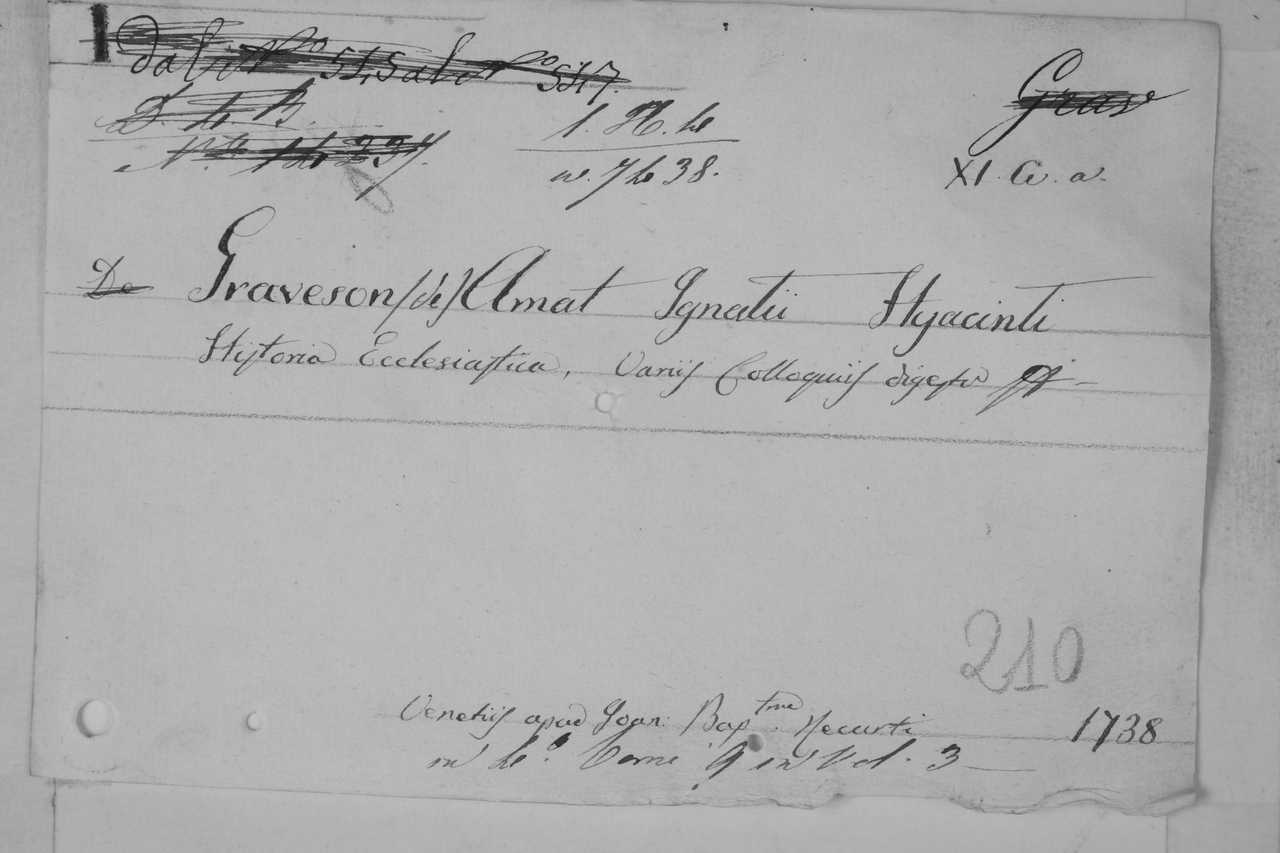 dal No 515 al No 517.
Grav
1. H. 4
n. 7 4 38.
XI. G. a.
De Graveson (de) Amat Ignatii Hyacinti
Hystoria Ecclesiastica, Variis Colloquiis digesta
210
Venetiis apud Joan: Bap.tma Recurti 1738
in 4.o Tomi 9 in Vol. 3